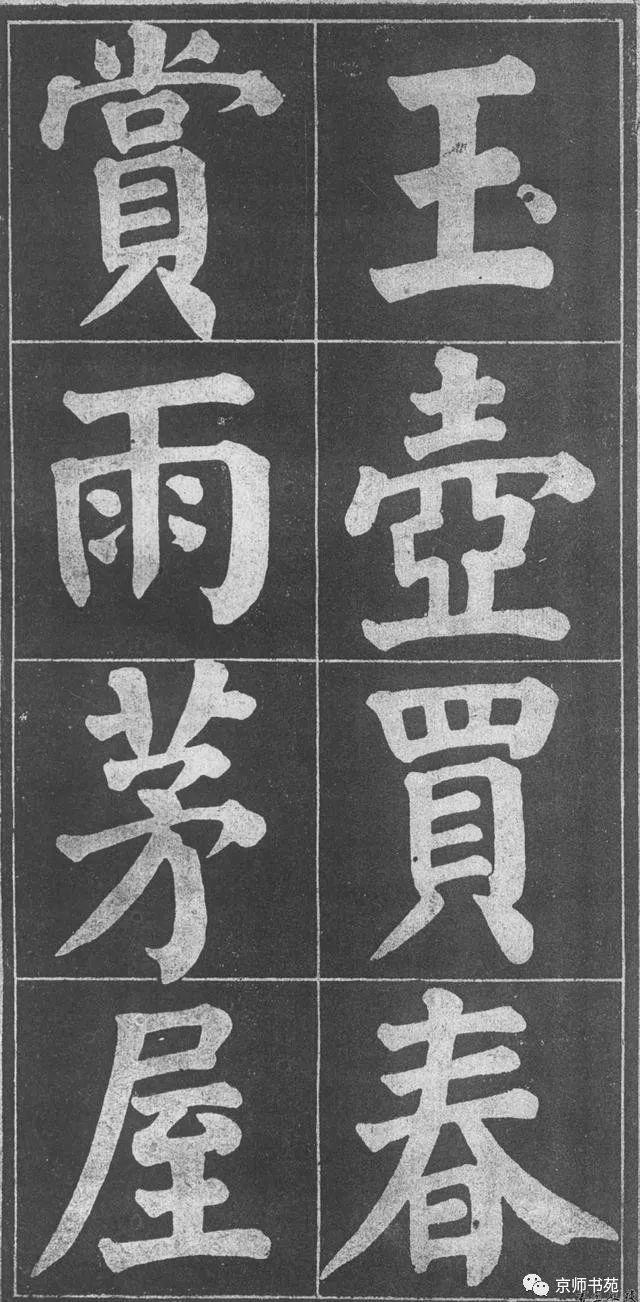 玉壺買春
賞雨茅屋
京师书苑